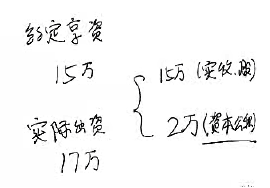 约定享资
15万
15万(实收.股)
实际出资
2万(资本公积)
17万